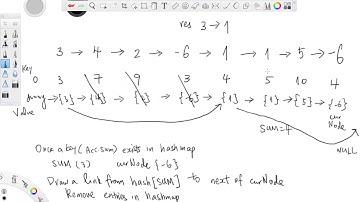 res 3 → 1
3 → 4 → 2 → -6 → 1 → 1 → 5 → -6
Key
0 3 7 9 3 4 5 10 4
dummy → {3} → {4} → {2} → {-6} → {1} → {1} → {5} → {-6}
Value
cur Node
SUM = 4
NULL
Once a key (Acc. sum) exists in hashmap
SUM (3) curNode {-6}
Draw a link from hash[SUM] to next of curNode
Remove entries in hashmap